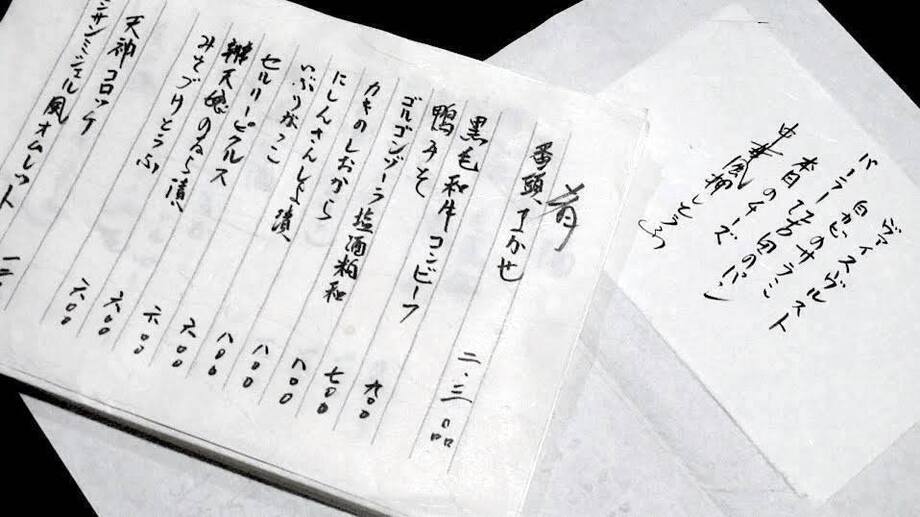 肴
番頭まかせ 二・三品
黒毛和牛コンビーフ 九〇〇
鴨みそ 七〇〇
ゴルゴンゾーラ塩酒粕和 八〇〇
カキのしおから 八〇〇
にしんさんしょ漬 八〇〇
いぶりがっこ 六〇〇
セルリーピクルス 六〇〇
辨天娘のなら漬 六〇〇
みそづけとうふ 六〇〇
天神コロッケ
ンサンミッシェル風オムレット
ヴァイスヴルスト
白カビのサラミ
パーラー江古田のパン
本日のチーズ
中華風押しとうふ